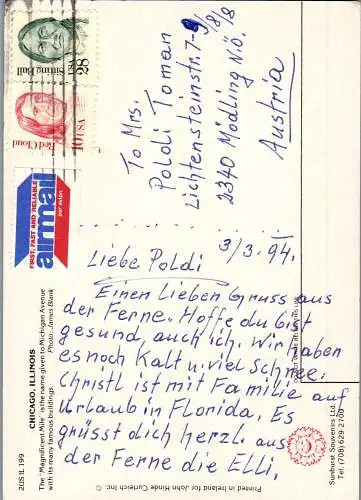 Sitting Bull
USA 28
Red Cloud
10 USA
FIRST, FAST AND RELIABLE
airmail
par avion
To Mrs.
Poldi Toman
Lichtensteinstr. 7-9/8/18
2340 Mödling N.Ö.
Austria
3/3.94.
Liebe Poldi
Einen Lieben Gruss aus
der Ferne. Hoffe du bist
gesund, auch ich. Wir haben
es noch Kalt u. viel Schnee.
Christl ist mit Familie auf
Urlaub in Florida. Es
grüsst dich herzl. aus
der Ferne die Elli.
CHICAGO, ILLINOIS
The "Magnificent Mile" is the name given to Michigan Avenue
with its many famous buildings.
Photo: James Blank
2US IL 199
Printed in Ireland for John Hinde Curteich Inc.
Sunburst Souvenirs Ltd.
Tel: (708) 629 2700